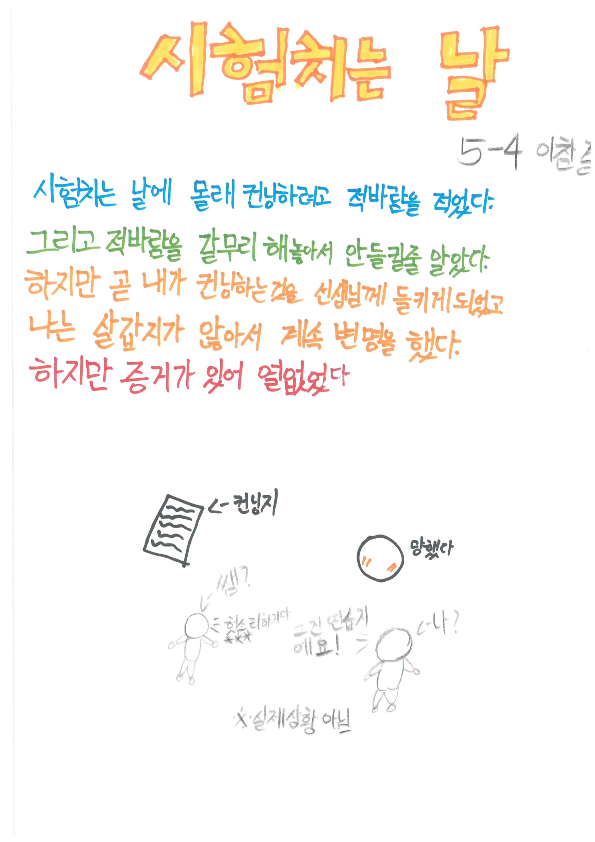 시험치는 날
5-4 이찬
시험치는 날에 몰래 컨닝하려고 적바람을 적었다.
그리고 적바람을 갈무리 해놓아서 안들킬줄 알았다.
하지만 곧 내가 컨닝하는것을 선생님께 들키게되었고
나는 살갑지가 않아서 계속 변명을 했다.
하지만 증거가 있어 열없었다
<- 컨닝지
망했다
쌤?
헛소리하지마
그건 연습지
에요!
<-나?
※실제상황 아님